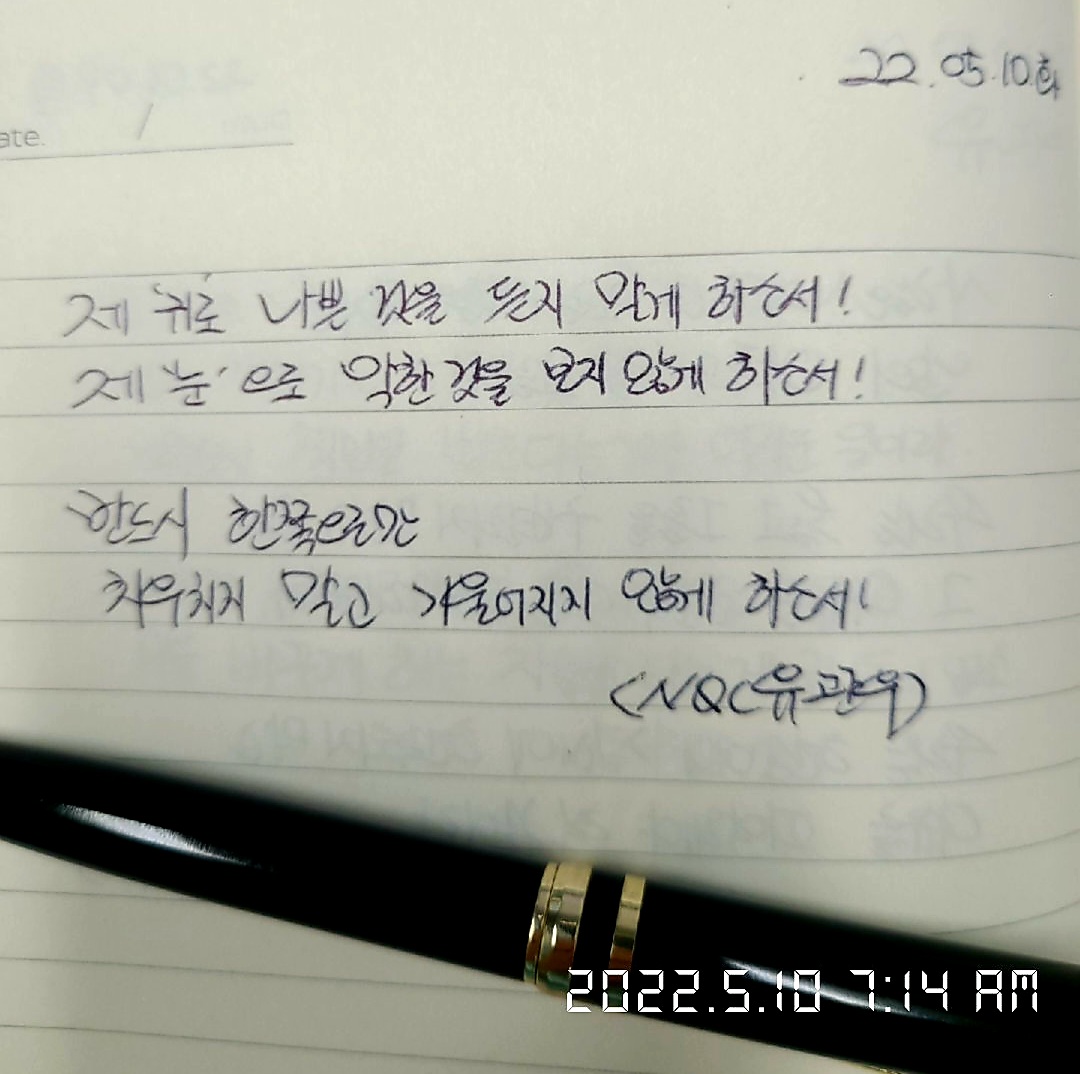 22.05.10.화
ate. /
제 '귀'로 나쁜 것을 듣지 않게 하소서!
제 '눈'으로 악한 것을 보지 않게 하소서!
반드시 한쪽으로만
치우치지 말고 기울어지지 않게 하소서!
(NQC유관우)
2022.5.10 7:14 AM